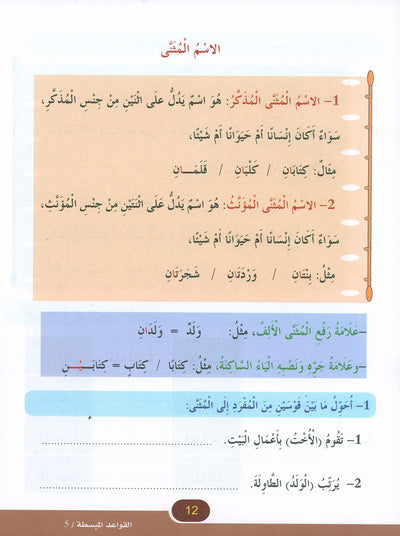 الاسْمُ الْمُثَنَّى
1- الاسْمُ الْمُثَنَّى الْمُذَكَّرُ: هُوَ اسْمٌ يَدُلُّ عَلَى اثْنَيْنِ مِنْ جِنْسِ الْمُذَكَّرِ،
سَوَاءٌ أَكَانَ إِنْسَانًا أَمْ حَيَوَانًا أَمْ شَيْئًا،
مِثَالٌ: كِتَابَانِ / كَلْبَانِ / قَلَمَـانِ
2- الاسْمُ الْمُثَنَّى الْمُؤَنَّثُ: هُوَ اسْمٌ يَدُلُّ عَلَى اثْنَتَيْنِ مِنْ جِنْسِ الْمُؤَنَّثِ،
سَوَاءٌ أَكَانَ إِنْسَانًا أَمْ حَيَوَانًا أَمْ شَيْئًا،
مِثْلُ: بِنْتَانِ / وَرْدَتَانِ / شَجَرَتَانِ
-عَلَامَةُ رَفْعِ الْمُثَنَّى الْأَلِفُ، مِثْلُ: وَلَدٌ = وَلَدَانِ
-وَعَلَامَةُ جَرِّهِ وَنَصْبِهِ الْيَاءُ السَّاكِنَةُ، مِثْلُ: كِتَابًا / كِتَابٍ = كِتَابَـــيْـــنِ
1- أُحَوِّلُ مَا بَيْنَ قَوْسَيْنِ مِنَ الْمُفْرَدِ إِلَى الْمُثَنَّى:
1- تَقُومُ (الْأُخْتُ) بِأَعْمَالِ الْبَيْتِ.
2- يُرَتِّبُ (الْوَلَدُ) الطَّاوِلَةَ.
12
القواعد المبسطة / 5